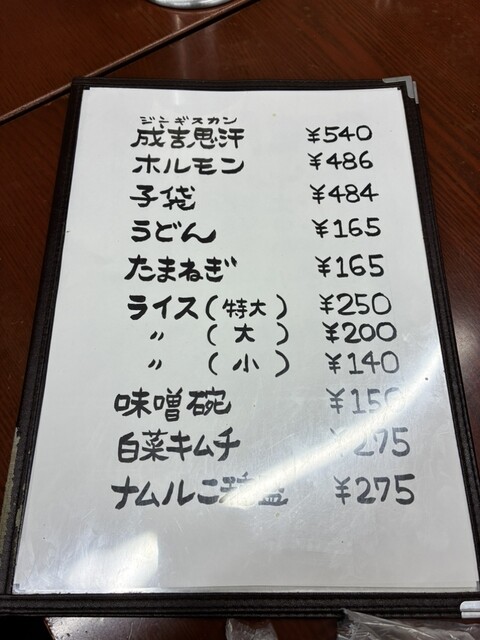 ジンギスカン
成吉思汗 ¥540
ホルモン ¥486
子袋 ¥484
うどん ¥165
たまねぎ ¥165
ライス(特大) ¥250
〃 (大) ¥200
〃 (小) ¥140
味噌碗 ¥150
白菜キムチ ¥275
ナムル二種盛 ¥275